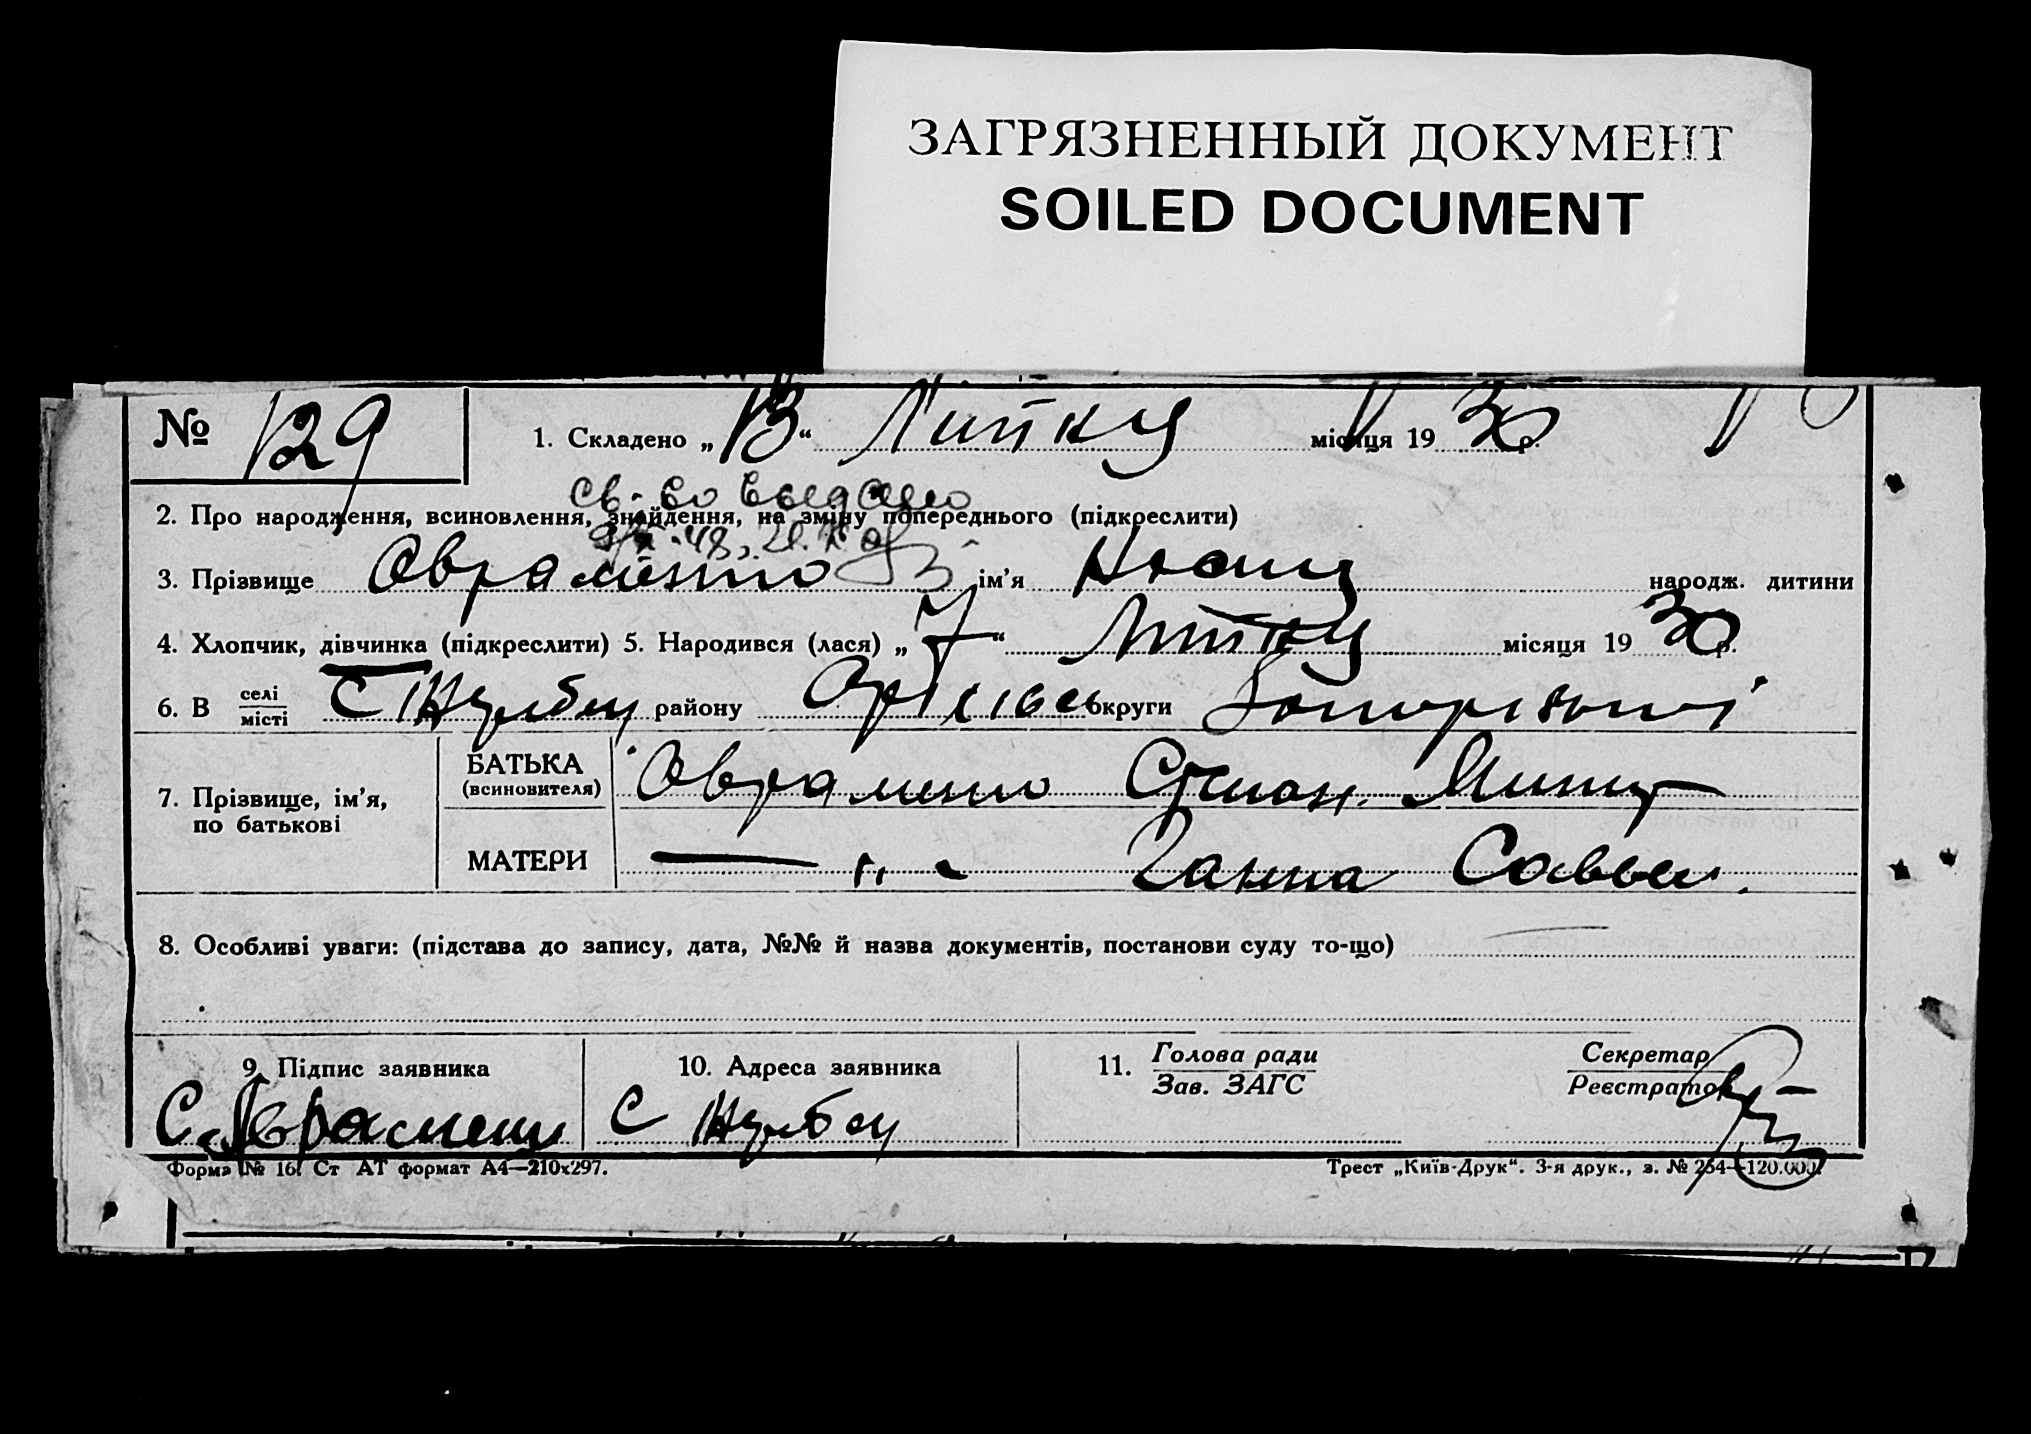 ЗАГРЯЗНЕННЫЙ ДОКУМЕНТ
SOILED DOCUMENT
№ 129
1. Складено „13“ Липня місяця 1930 р.
св-во выдано
2. Про народження, всиновлення, знайдення, на зміну попереднього (підкреслити)
3. Прізвище Авраменко ім’я народж. дитини
4. Хлопчик, дівчинка (підкреслити) 5. Народився (лася) „7“ Липня місяця 1930 р.
6. В селі
місті
С району округи
7. Прізвище, ім’я,
по батькові
БАТЬКА
(всиновителя)
Авраменко Степан
МАТЕРИ
— „ - Ганна
8. Особливі уваги: (підстава до запису, дата, №№ й назва документів, постанови суду то-що)
9. Підпис заявника
С. Авраменко
10. Адреса заявника
с
11. Голова ради
Зав. ЗАГС
Секретар
Реєстратор
Форма № 16. Ст АТ формат А4—210х297.
Трест „Київ-Друк“. 3-я друк., з. № 254—120.000.